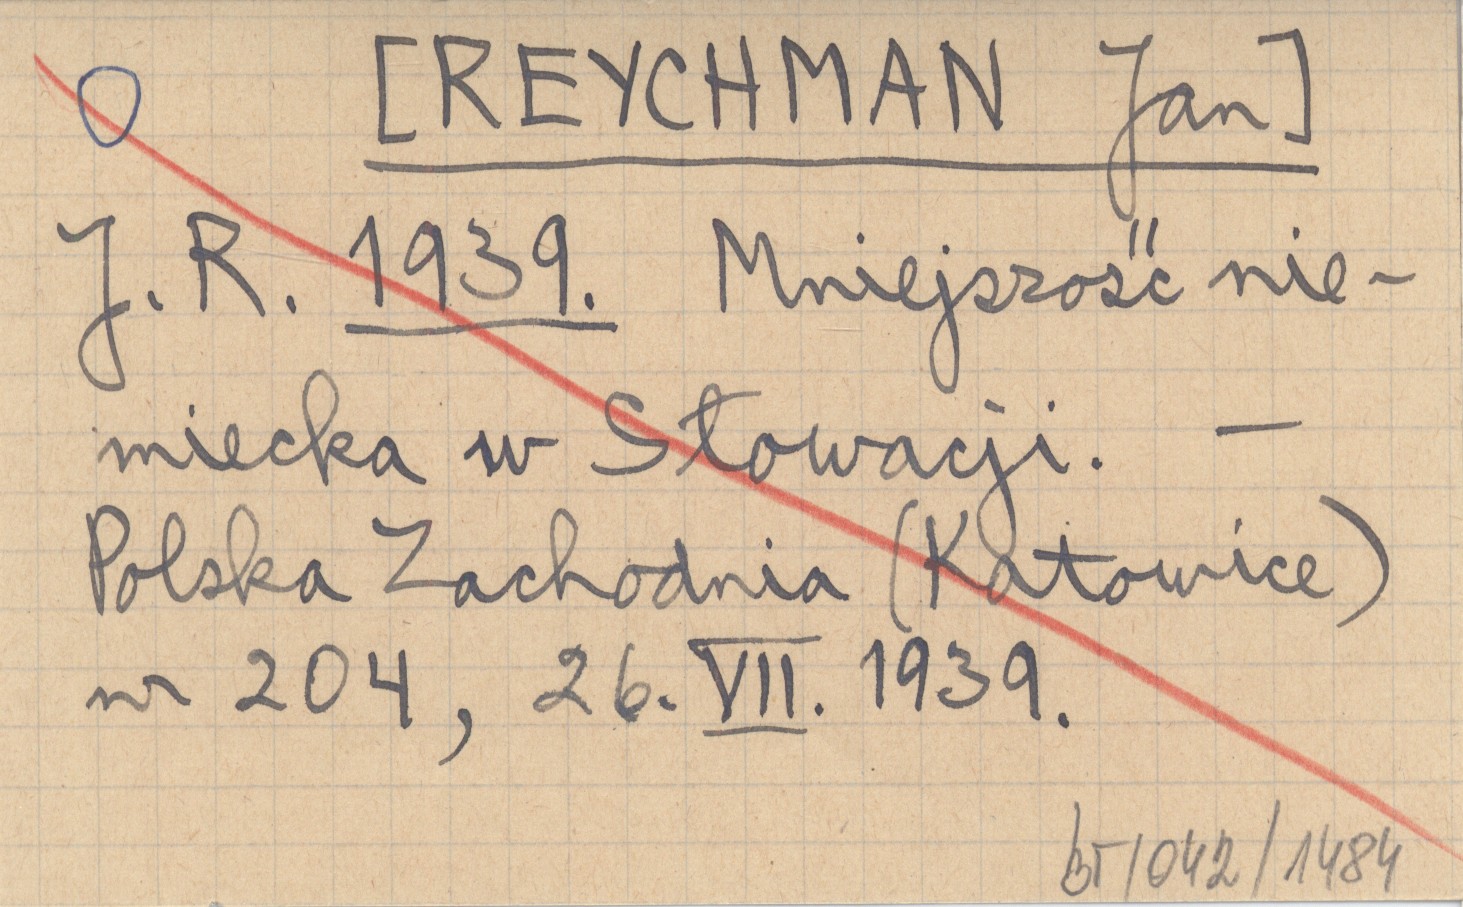 [REYCHMAN Jan]
J. R. 1939. Mniejszość nie-
miecka w Słowacji. —
Polska Zachodnia (Katowice)
nr 204, 26. VII. 1939.
BT/042/1484